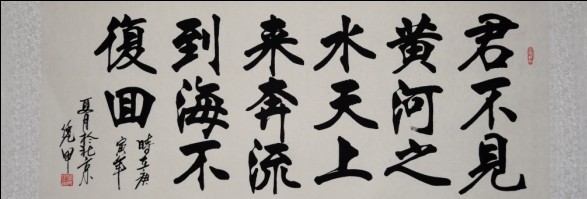 君不見
黄河之
水天上
来奔流
到海不
復回
時在庚
寅年
夏月於北京